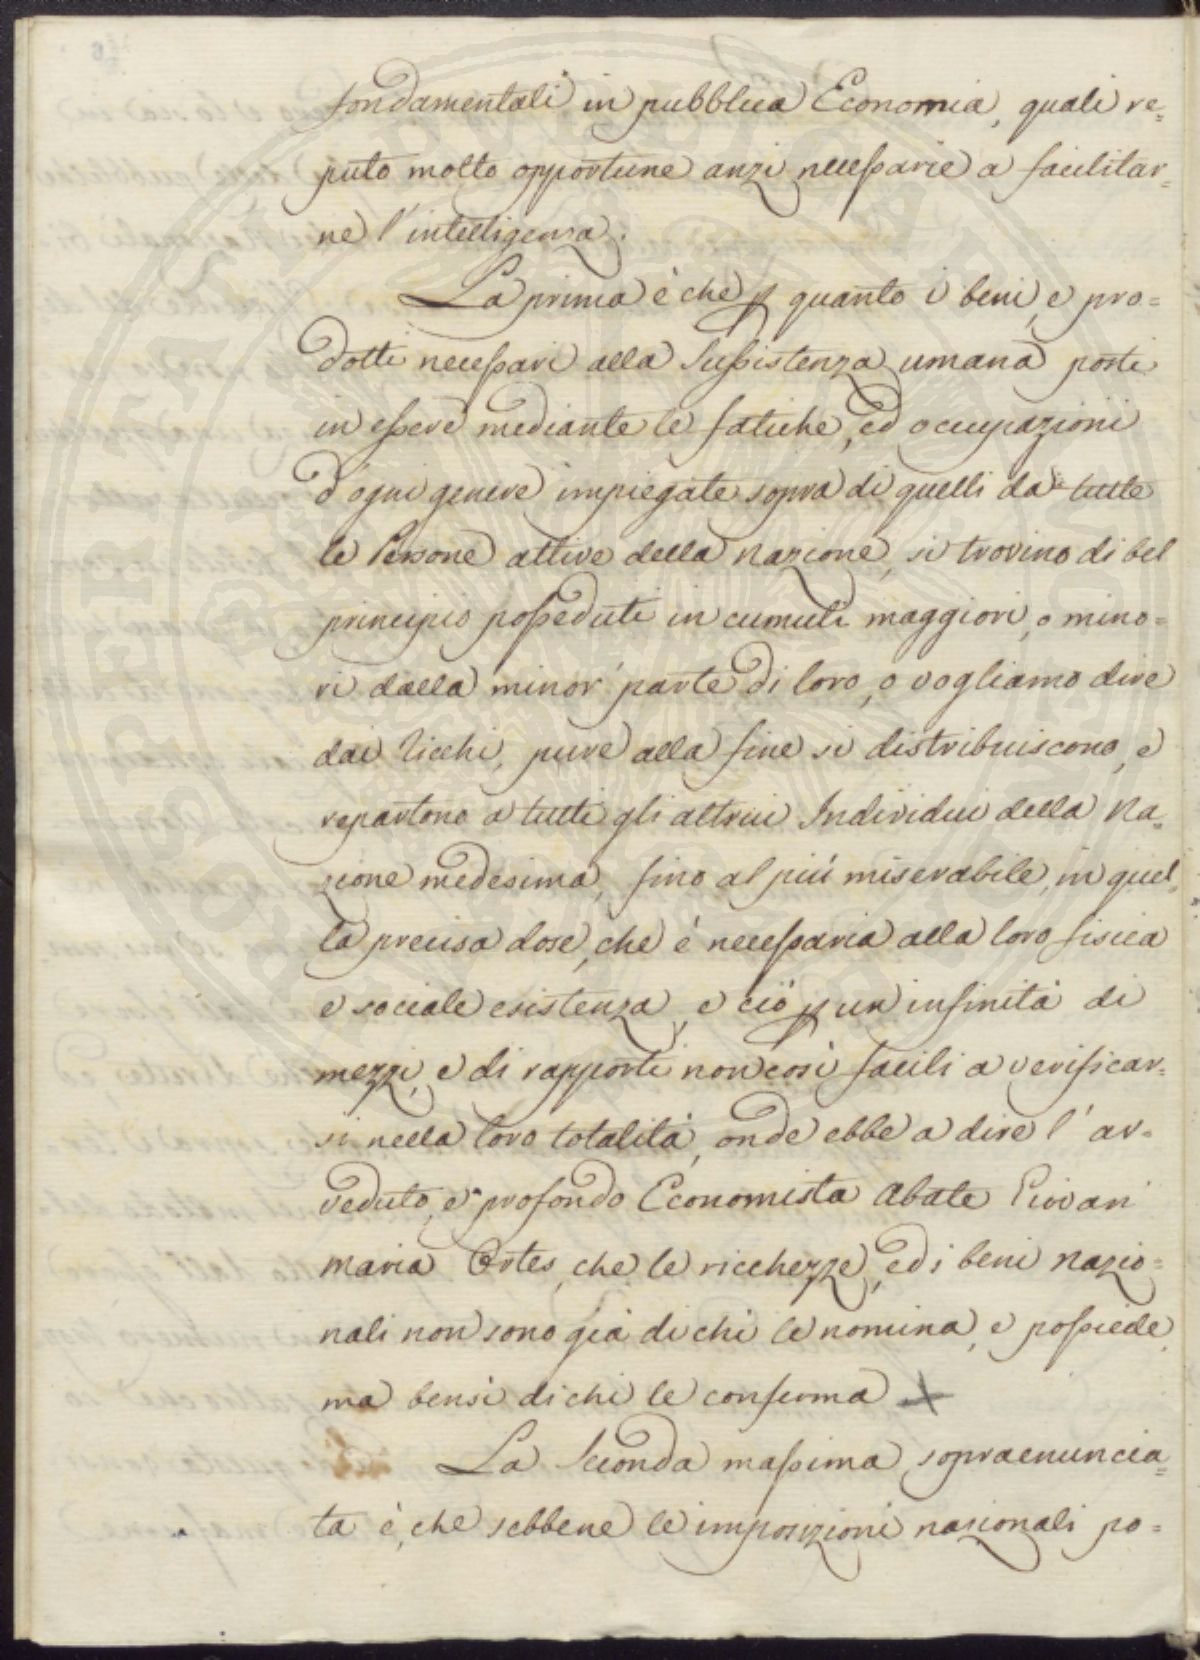 fondamentali in pubblica Economia, quali re=
puto molto opportune anzi necessarie a facilitar=
ne l'intelligenza.
La prima è che p quanto i beni, e pro=
dotti necessari alla Sussistenza umana posti
in essere mediante le fatiche, ed occupazioni
d'ogni genere impiegate sopra di quelli da tutte
le Persone attive della Nazione, si trovino di bel
principio posseduti in cumuli maggiori, o mino=
ri dalla minor parte di loro, o vogliamo dire
dai Ricchi, pure alla fine si distribuiscono, e
repartono a tutti gli altrui Individui della Na=
zione medesima, fino al più miserabile, in quel=
la precisa dose, che è necessaria alla loro fisica
e sociale esistenza, e ciò p un infinità di
mezzi, e di rapporti non così facili a verificar=
si nella loro totalità, onde ebbe a dire l'av=
veduto, e profondo Economista Abate Giovan
Maria Ortes, che le ricchezze, ed i beni nazio=
nali non sono già di chi le nomina, e possiede,
ma bensì di chi le conferma
La Seconda massima sopraenuncia=
ta è, che sebbene le imposizioni nazionali po=
PROSPERITATI PUBLICAE AUGENDAE